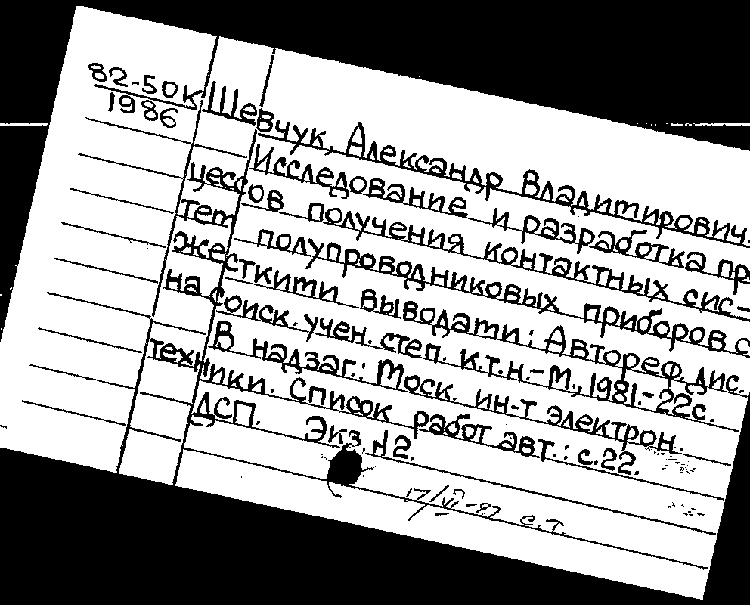 82-50к Шевчук, Александр Владимирович.
1986
Исследование и разработка пр
цессов получения контактных сис=
тем полупроводниковых приборов с
жесткими выводами: Автореф. дис.
на соиск. учен. степ. к.т.н.-М., 1981.-22с.
В надзаг.: Моск. ин-т электрон.
техники. Список работ авт.: с.22.
ДСП. Экз. №2.
17/VI-87 е.т.